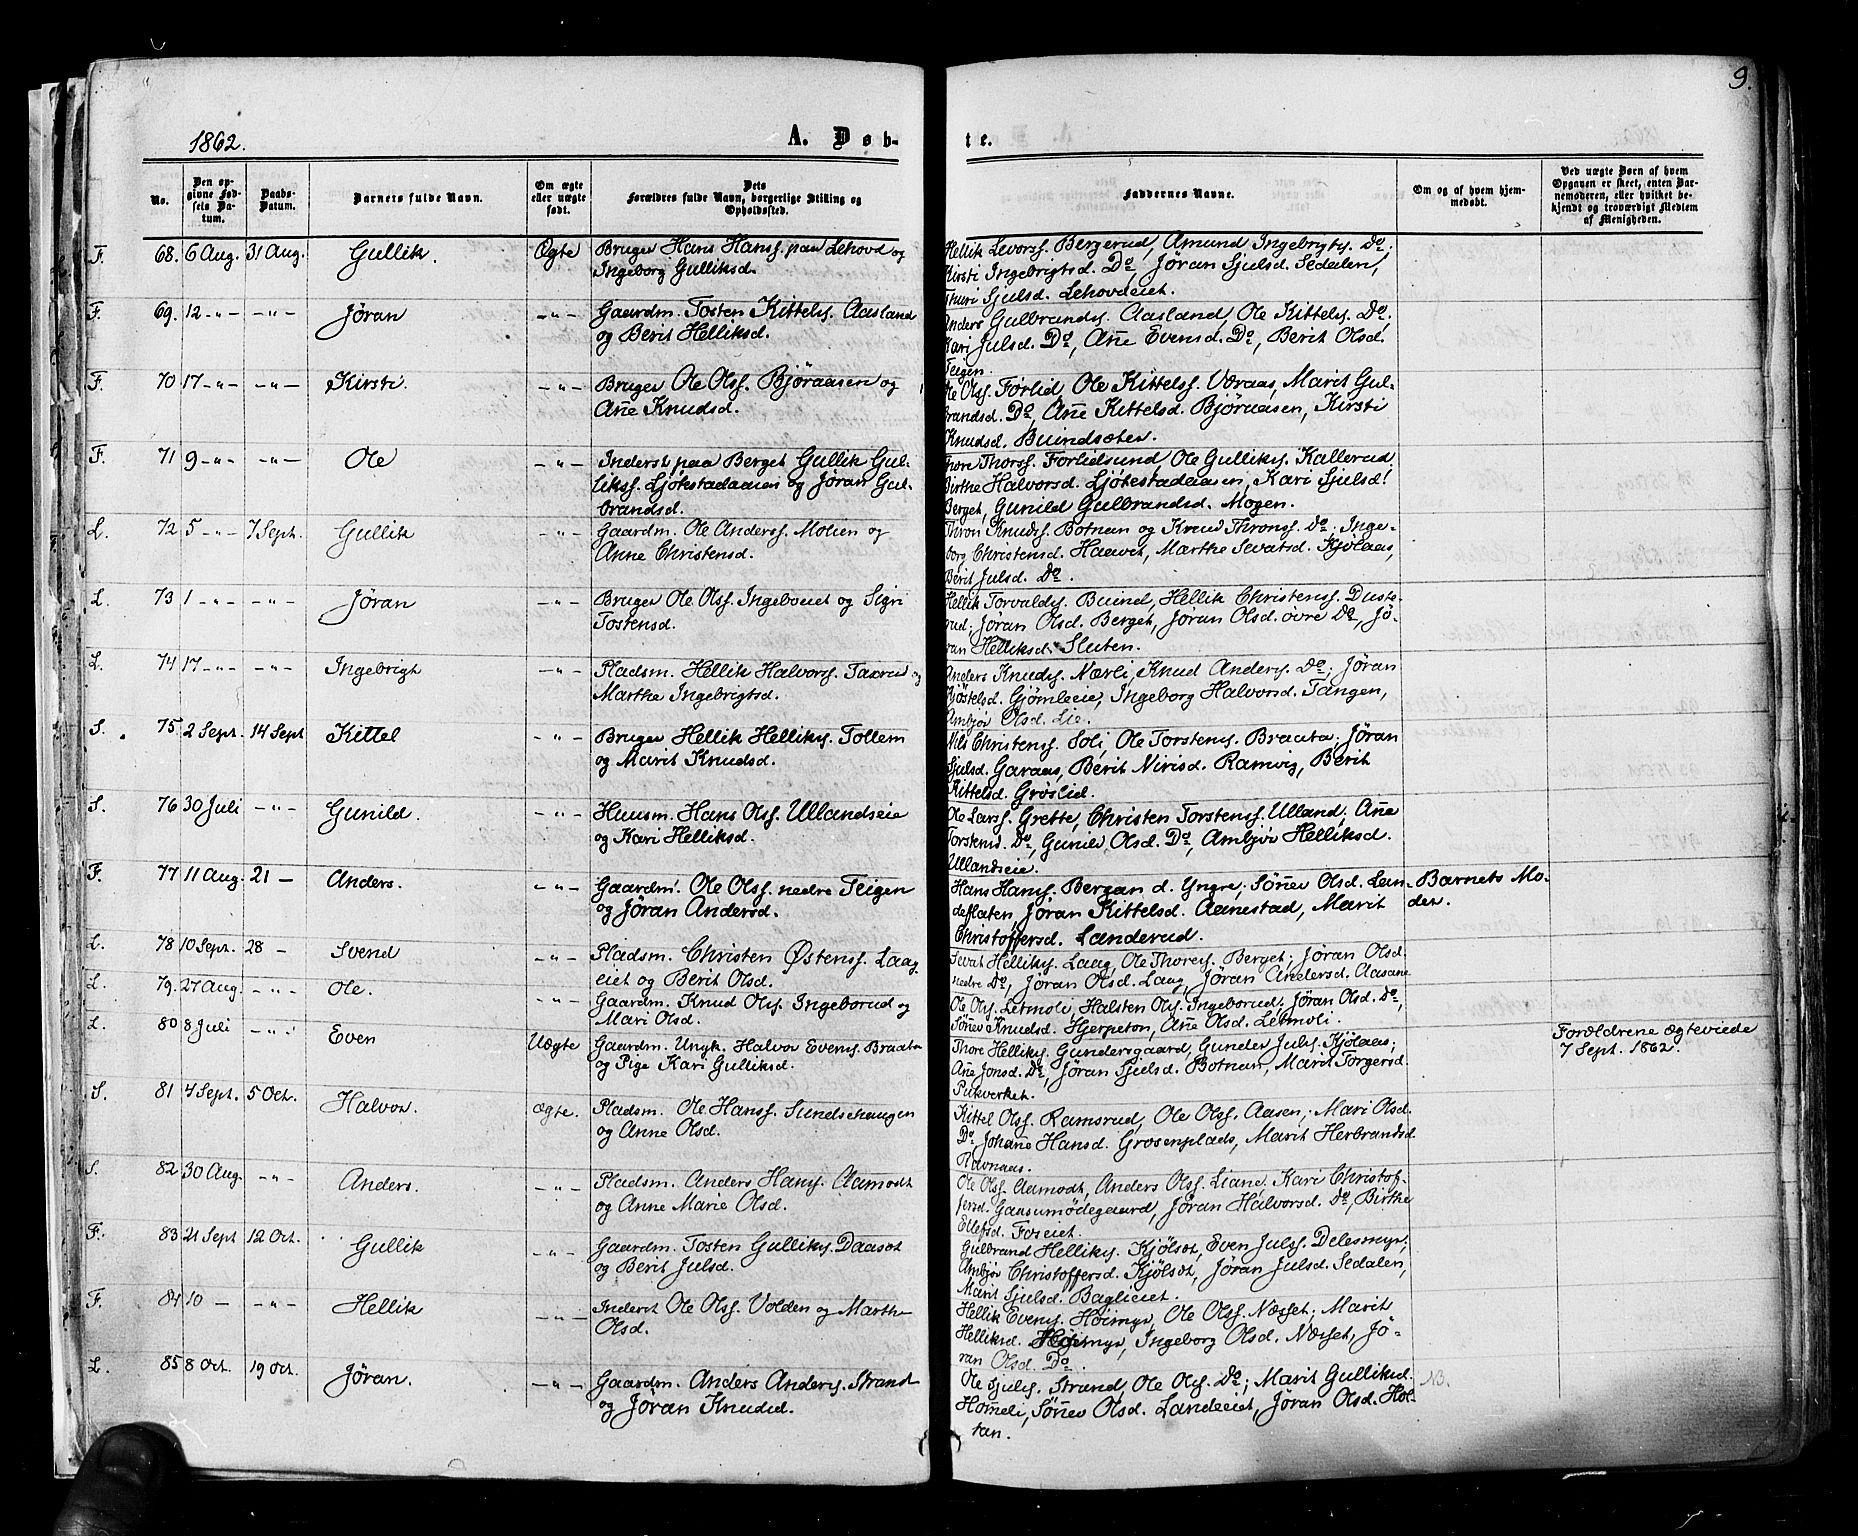 9.
1862.
A. Døb-
te.
No.
Den op-
givne Fød-
sels Da-
tum.
Daabs-
Datum.
Barnets fulde Navn.
Om ægte
eller uægte
født.
Dets
Forældres fulde Navn, borgerlige Stilling og
Opholdssted.
Faddernes Navne.
Om og af hvem hjem-
medøbt.
Ved uægte Børn af hvem
Opgaven er skeet, enten Bar-
nemoderen, eller hvilket be-
kjendt og troværdigt Medlem
af Menigheden.
F. 68. 6 Aug. 31 Aug. Gullik. Ægte Bruger Hans Hanss. paa Lehovd og
Ingeborg Gulliksd.
Hellik Levorss. Bergerud, Amund Ingebrigts. Do.
Kirsti Ingebrigtsd. Do Jøran Sjulsd. Sedalen,
Thuri Sjulsd. Lehovdeiet.
F. 69. 12 -"- -"- Jøran -"- Gaardm. Tosten Kittels. Aasland
og Berit Helliksd.
Anders Gulbrands. Aasland, Ole Kittels. Do,
Kari Julsd. Do, Añe Evensd. Do, Berit Olsd.
Teigen.
F. 70 17 -"- -"- Kirsti. -"- Bruger Ole Olss. Bjøraasen og
Añe Knudsd.
Ole Olss. Førlid, Ole Kittelss. Væraas, Marit Gul-
brandsd. Do, Añe Kittelsd. Bjøraasen, Kirsti
Knudsd. Buindsæter.
F. 71 9 -"- -"- Ole -"- Inderst paa Berget Gullik Gul-
likss. Ljøkestadaasen og Jøran Gul-
brandsd.
Thore Thorss. Forlidsund, Ole Gulliks. Kallerud
Birthe Halvorsd. Ljøkestadeiasen, Kari Sjulsd.
Berget, Gunild Gulbrandsd. Mogen.
L. 72 5 -"- 7 Sept. Gullik -"- Gaardm. Ole Anderss. Moen og
Anne Christensd.
Thron Knuds. Botnan og Knud Thronss. Do; Inge-
borg Christensd. Haavet, Marthe Sevatsd. Kjølaas,
Berit Julsd. Do.
L. 73 1 -"- -"- Jøran -"- Bruger Ole Olss. Ingeboeiet og Sigri
Tostensd.
Hellik Torvalds. Buind, Hellik Christenss. Duste-
rud, Jøran Olsd. Berget, Jøran Olsd. øvre Do, Jø-
ran Helliksd. Sluten.
L. 74 17 -"- -"- Ingebrigt -"- Pladsm. Hellik Halvorss. og
Marthe Ingebrigtsd.
Anders Knuds. Nærli, Knud Anders. Do; Jøran
Gjøstelsd. Gjømleeie, Ingeborg Halvorsd. Tangen,
Ambjør Olsd. Lie.
S. 75 2 Sept. 14 Sept Kittel -"- Bruger Hellik Helliks. Tollem
og Marit Knudsd.
Nils Christenss. Soli, Ole Torstens. Braata; Jøran
Sjulsd. Garaas, Berit Nirisd. Ramvig, Berit
Kittelsd. Grøslid.
S. 76 30 Juli -"- Gunild. -"- Huusm. Hans Olss. Ullandseie
og Kari Helliksd.
Ole Larss. Grette, Christen Torstenss. Ulland, Añe
Torstensd. Do, Gunild Olsd. Do, Ambjør Helliksd.
Ullandseie.
F. 77 11 Aug. 21 - Anders. -"- Gaardm. Ole Olss. nedre Teigen
og Jøran Andersd.
Hans Hanss. Bergan d. Yngre; Søñev Olsd. Lan-
deflaten, Jøran Kittelsd. Aanestad, Marit
Christoffersd. Landerud.
Barnets Mo-
der.
L. 78 10 Sept. 28 - Svend -"- Pladsm. Christen Østenss. Laag
eiet og Berit Olsd.
Sevat Helliks. Laag, Ole Thores. Berget; Jøran Olsd.
nedre Do, Jøran Olsd. Laag, Jøran Andersd. Aasane
L. 79. 27 Aug. -"- Ole. -"- Gaardm. Knud Olss. Ingeborud og
Mari Olsd.
Ole Olss. Letmoli, Halsten Olss. Ingeborud. Jøran Olsd. Do,
Søñev Knudsd. Hjerpeton, Añe Olsd. Letmoli.
L. 80 8 Juli -"- Even Uægte Gaardm. Ungk. Halvor Evens. Braata
og Pige Kari Gulliksd.
Thore Helliks. Gundersgaard, Gunder Juls. Kjølaas;
Añe Jonsd. Do, Jøran Sjulsd. Botnan, Marit Torgersd.
Pukverket.
Forældrene ægteviede
7 Sept. 1862.
S. 81 4 Sept. 5 Oct. Halvor. ægte. Pladsm. Ole Hanss. Sundsehaugen
og Anne Olsd.
Kittel Olss. Ramsrud, Ole Olss. Aasen; Mari Olsd.
Do, Johañe Hansd. Grosenplads, Marit Herbrandsd.
Ravnaas.
S. 82 30 Aug. -"- Anders. -"- Pladsm. Anders Hanss. Aamodt
og Anne Marie Olsd.
Ole Olss. Aamodt, Anders Olss. Liane. Kari Christof-
fersd. Gaasumødegaard, Jøran Halvorsd. Do, Birthe
Ellefsd. Foseiet.
F. 83 21 Sept 12 Oct. Gullik -"- Gaardm. Tosten Gulliks. Daaset
og Berit Julsd.
Gulbrand Helliks. Kjølset, Even Julss. Delesmyr;
Ambjør Christoffersd. Kjølset, Jøran Julsd. Sedalen,
Marit Sjulsd. Baglieiet.
F. 84 10 - -"- Hellik -"- Inderst Ole Olss. Volden og Marthe
Olsd.
Hellik Evens. Høimyr, Ole Olss. Næsset; Marit
Helliksd. Høimyr, Ingeborg Olsd. Næsset, Jø-
ran Olsd. Do
L. 85 8 Oct. 19 Oct. Jøran. -"- Gaardm. Anders Anders. Strand
og Jøran Knudsd.
Ole Sjuls. Strand, Ole Olss. Do; Marit Gulliksd.
Homeli, Søñev Olsd. Landeeiet, Jøran Olsd. Hol-
tan.
NB.